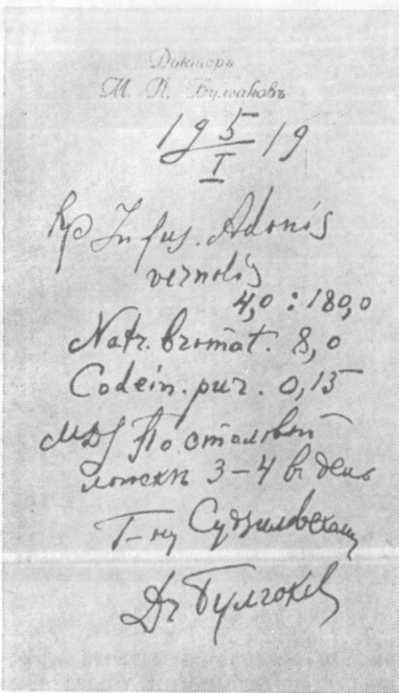 Докторъ
М. А. Булгаковъ
19 5/I 19
Rp Infus. Adonis
vernalis
4,0 : 180,0
Natr. bromat. 8,0
Codein. pur. 0,15
MDS По столовой
ложкѣ 3–4 въ день
Г-ну Судзиловскому
Др Булгаков